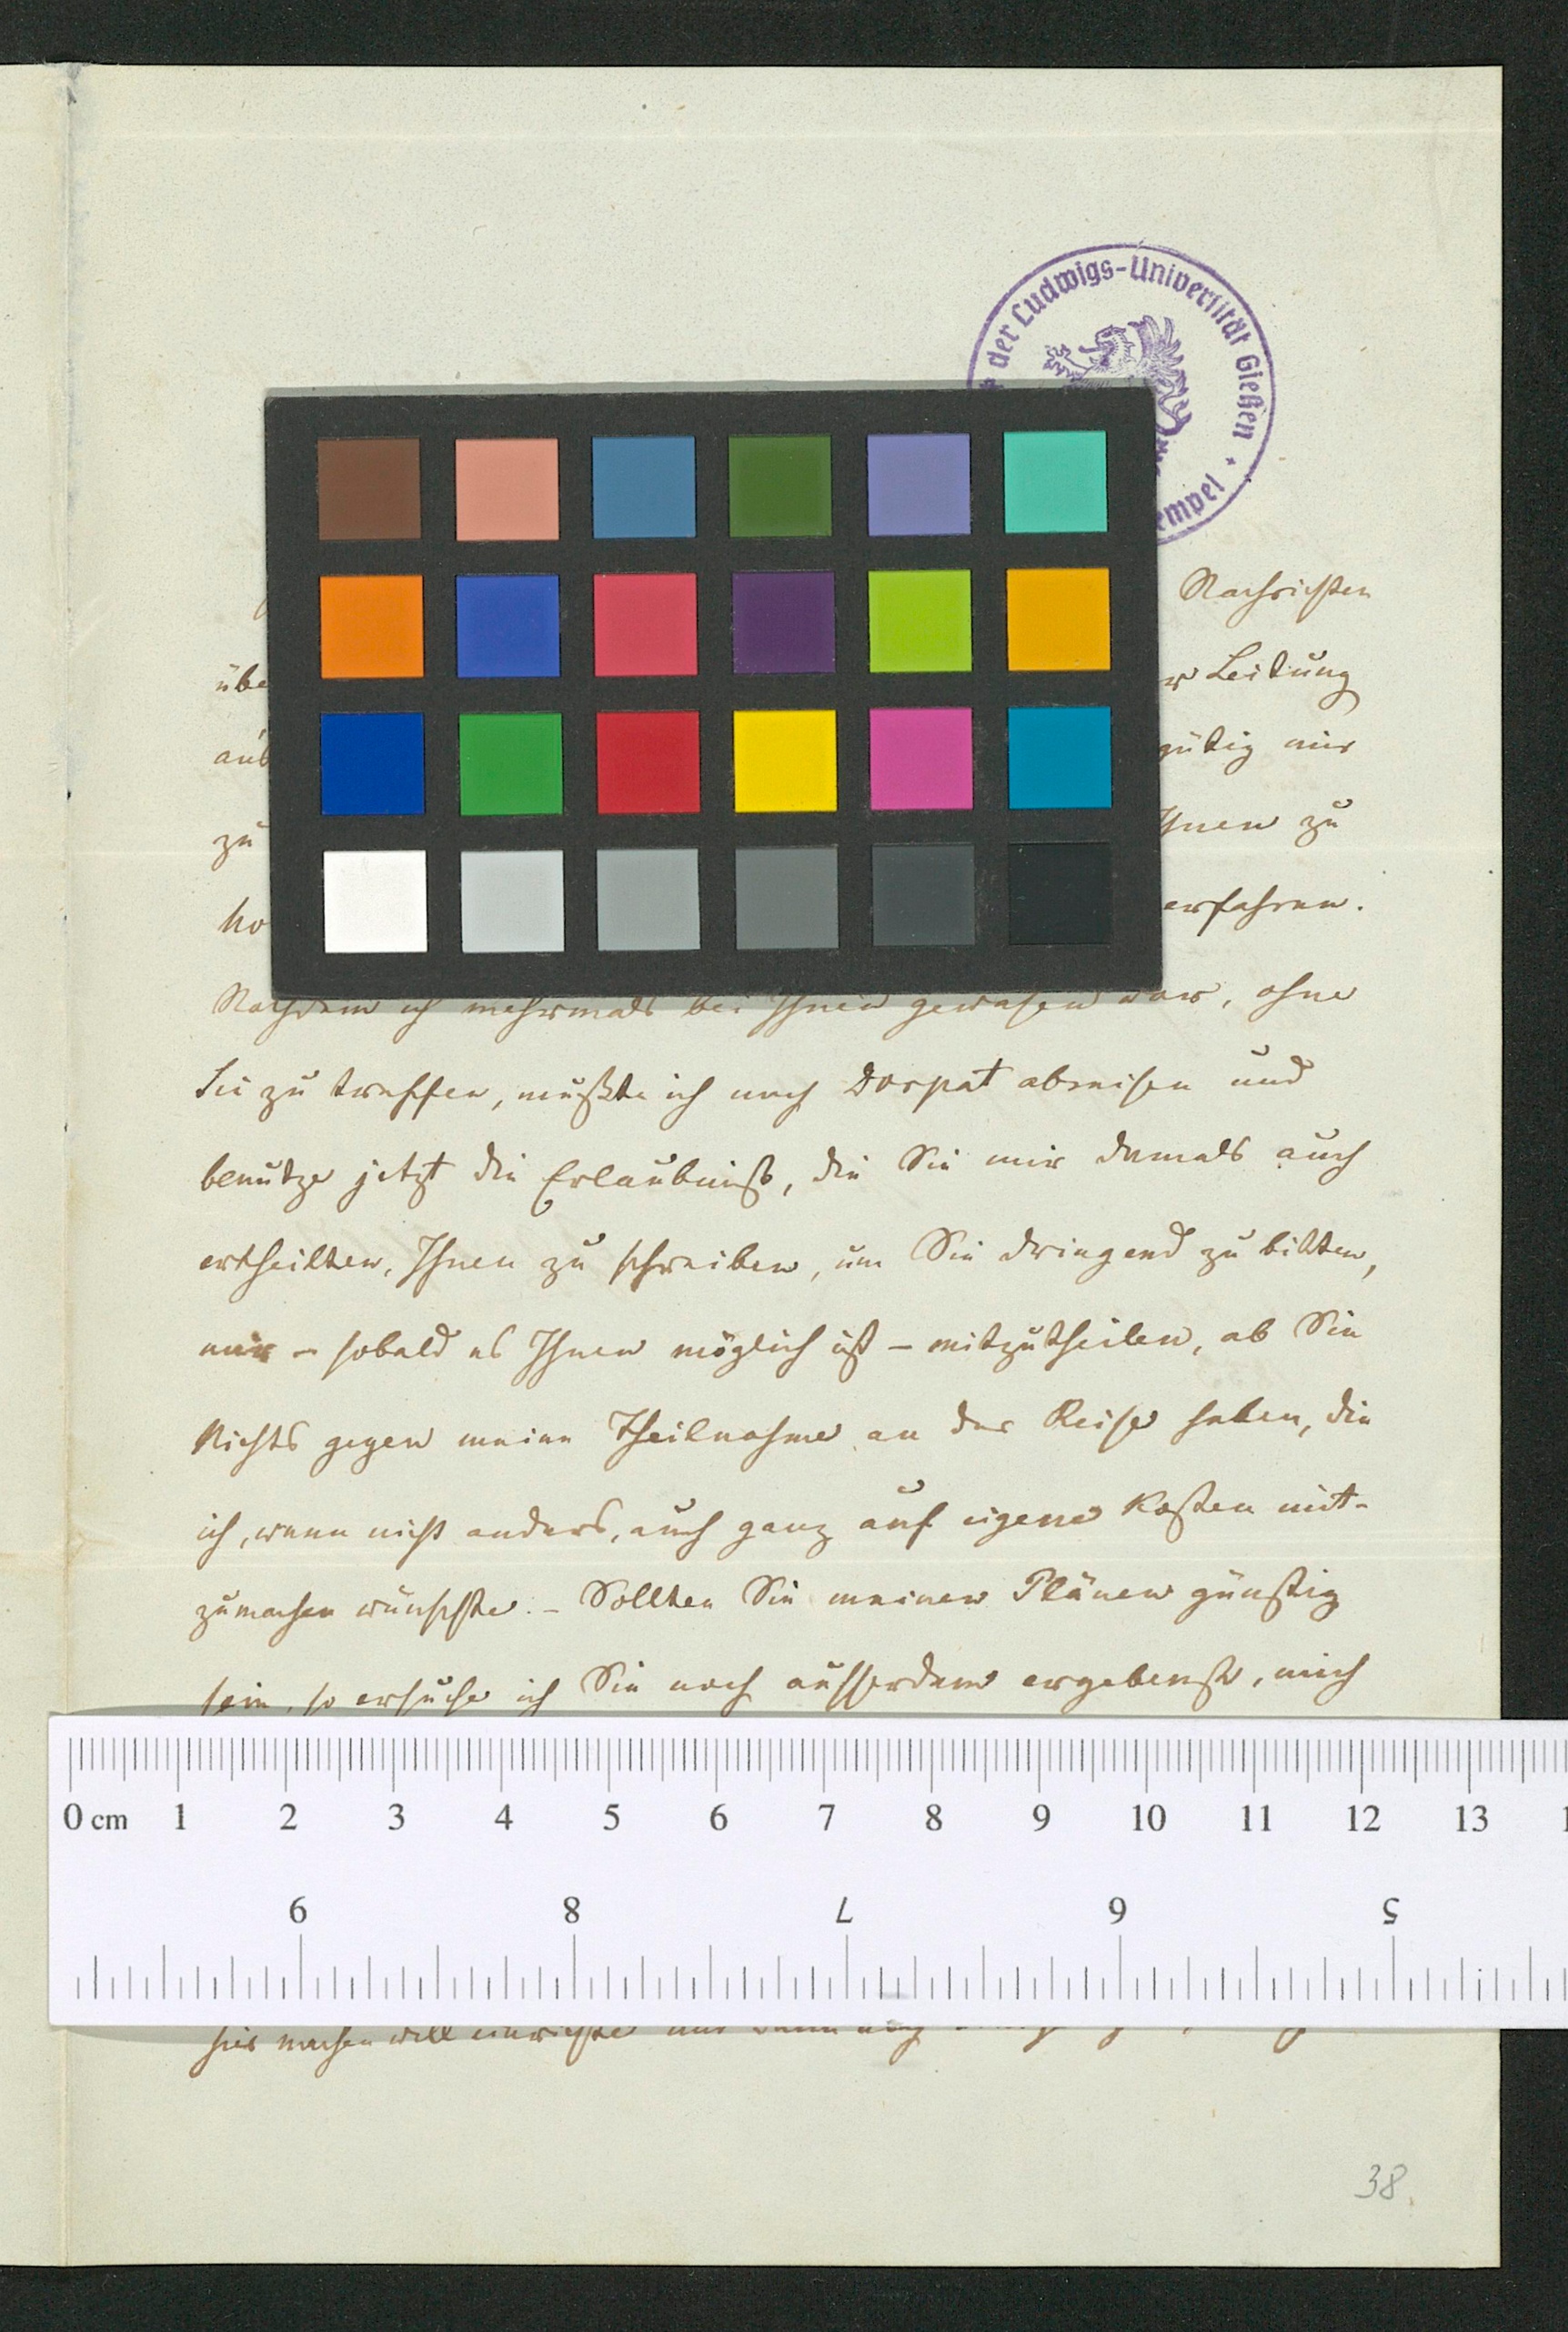 der Ludwigs-Universität Gießen
empel
Nachrichten
übe r Leitung
aus gütig mir
zu Ihnen zu
ho erfahren.
Nachdem ich mehrmals bei Ihnen gewesen war, ohne
Sie zu treffen, mußte ich nach Dorpat abreisen und
benutze jetzt die Erlaubniß, die Sie mir damals auch
ertheilten, Ihnen zu schreiben, um Sie dringend zu bitten,
mir – sobald es Ihnen möglich ist – mitzutheilen, ob Sie
Nichts gegen meine Theilnahme an der Reise haben, die
ich, wenn nicht anders, auch ganz auf eigene Kosten mit-
zumachen wünschte. – Sollten Sie meinen Plänen günstig
sein, so ersuche ich Sie noch ausserdem ergebenst, mich
0 cm 1 2 3 4 5 6 7 8 9 10 11 12 13
9 8 7 6 5
hier machen will einrichte und dann
38.